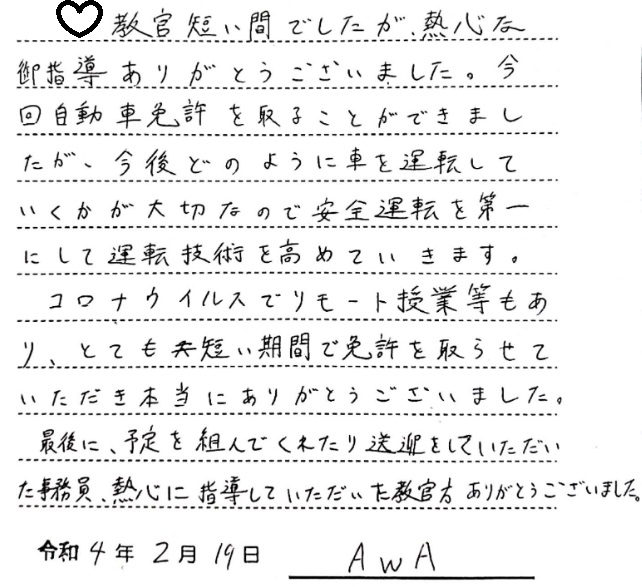 ♡教官短い間でしたが、熱心な
御指導ありがとうございました。今
回自動車免許を取ることができまし
たが、今後どのように車を運転して
いくかが大切なので安全運転を第一
にして運転技術を高めていきます。
コロナウイルスでリモート授業等もあ
り、とても短い期間で免許を取らせて
いただき本当にありがとうございました。
最後に、予定を組んでくれたり送迎をしていただい
た事務員、熱心に指導していただいた教官方ありがとうございました。
令和4年2月19日 AwA